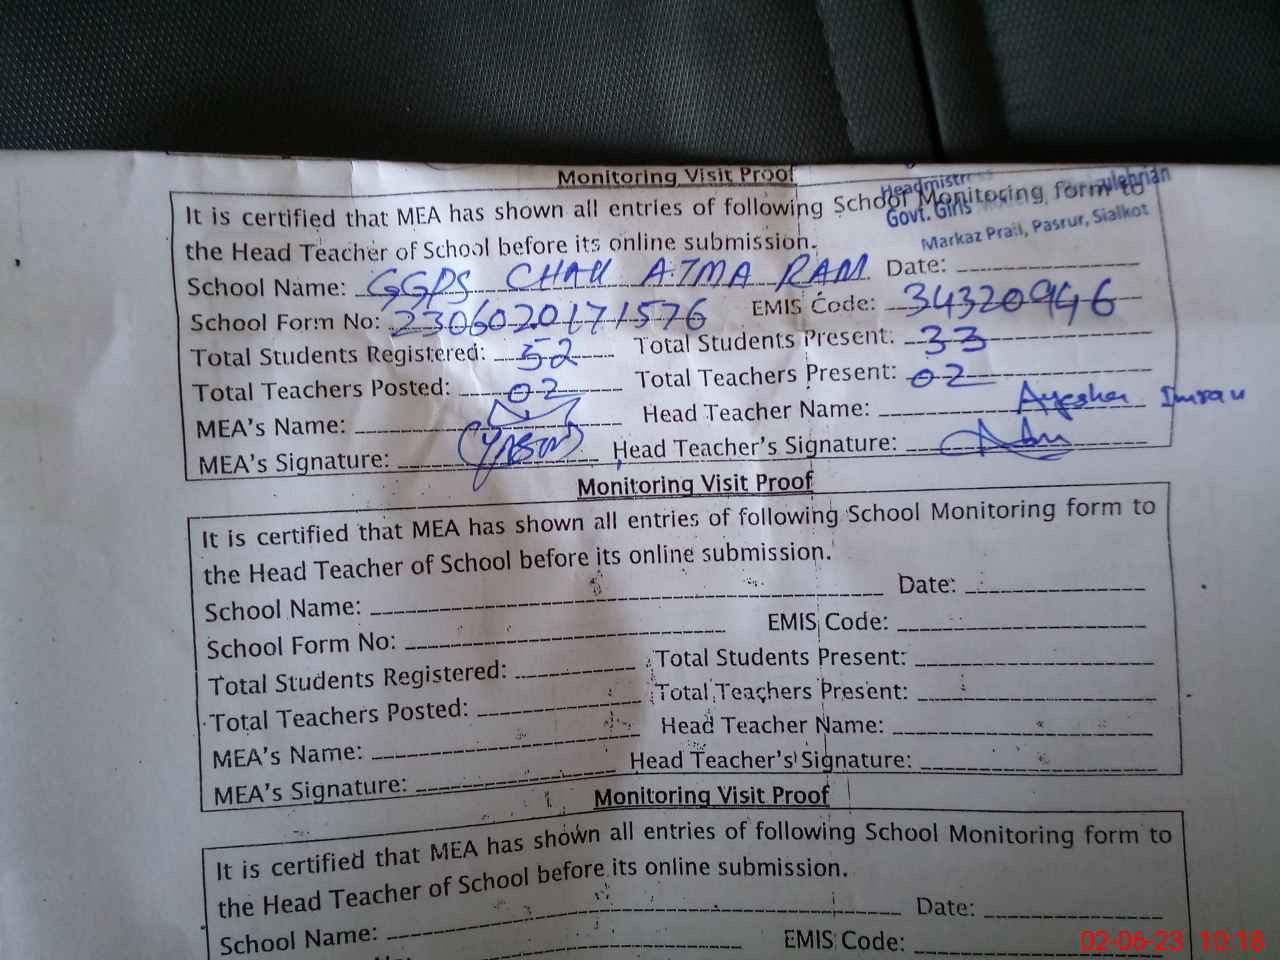 Monitoring Visit Proof
It is certified that MEA has shown all entries of following School Monitoring form to
Headmistress
Govt. Girls
Markaz Prail, Pasrur, Sialkot
the Head Teacher of School before its online submission.
School Name: GGPS CHAK ATMA RAM Date:
School Form No: 2306020171576 EMIS Code: 34320946
Total Students Registered: 52 Total Students Present: 33
Total Teachers Posted: 02 Total Teachers Present: 02
MEA's Name: Head Teacher Name: Ayesha Imran
MEA's Signature: Head Teacher's Signature:
Monitoring Visit Proof
It is certified that MEA has shown all entries of following School Monitoring form to
the Head Teacher of School before its online submission.
School Name: Date:
School Form No: EMIS Code:
Total Students Registered: Total Students Present:
Total Teachers Posted: Total Teachers Present:
MEA's Name: Head Teacher Name:
MEA's Signature: Head Teacher's Signature:
Monitoring Visit Proof
It is certified that MEA has shown all entries of following School Monitoring form to
the Head Teacher of School before its online submission.
School Name: Date:
EMIS Code:
02-06-23 10:18